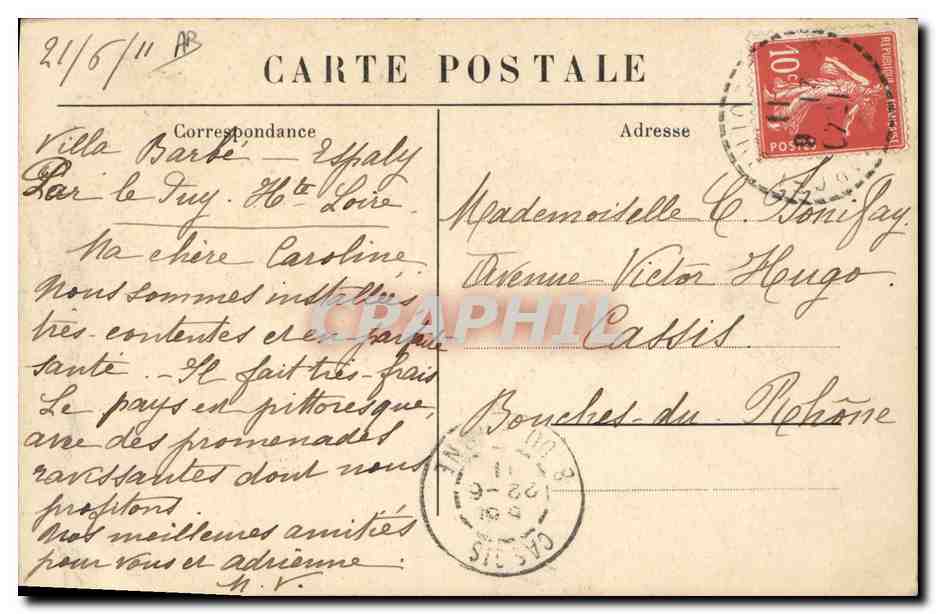 21/6/11 AB
CARTE POSTALE
Correspondance
Villa Barbé - Espaly
Par le Puy. Hte Loire.
Ma chère Caroline
Nous sommes installées
très-contentes et en parfaite
santé. - Il fait très-frais
Le pays est pittoresque,
avec des promenades
ravissantes dont nous
profitons.
Nos meilleures amitiés
pour vous et Adrienne.
M. V.
Adresse
Mademoiselle C. Bonifay.
Avenue Victor Hugo.
Cassis.
Bouches-du-Rhône
REPUBLIQUE FRANÇAISE
10c
POSTES
CASSIS
22-6
11
B DU RHONE
CPAPHIL